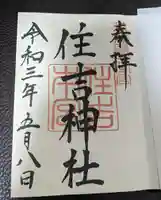 奉拝
住吉神社
令和三年五月八日